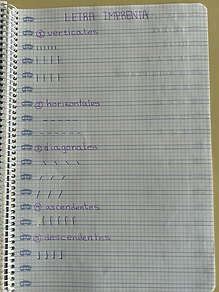 LETRA IMPRENTA
① verticales
② horizontales
③ diagonales
④ ascendentes
⑤ descendentes